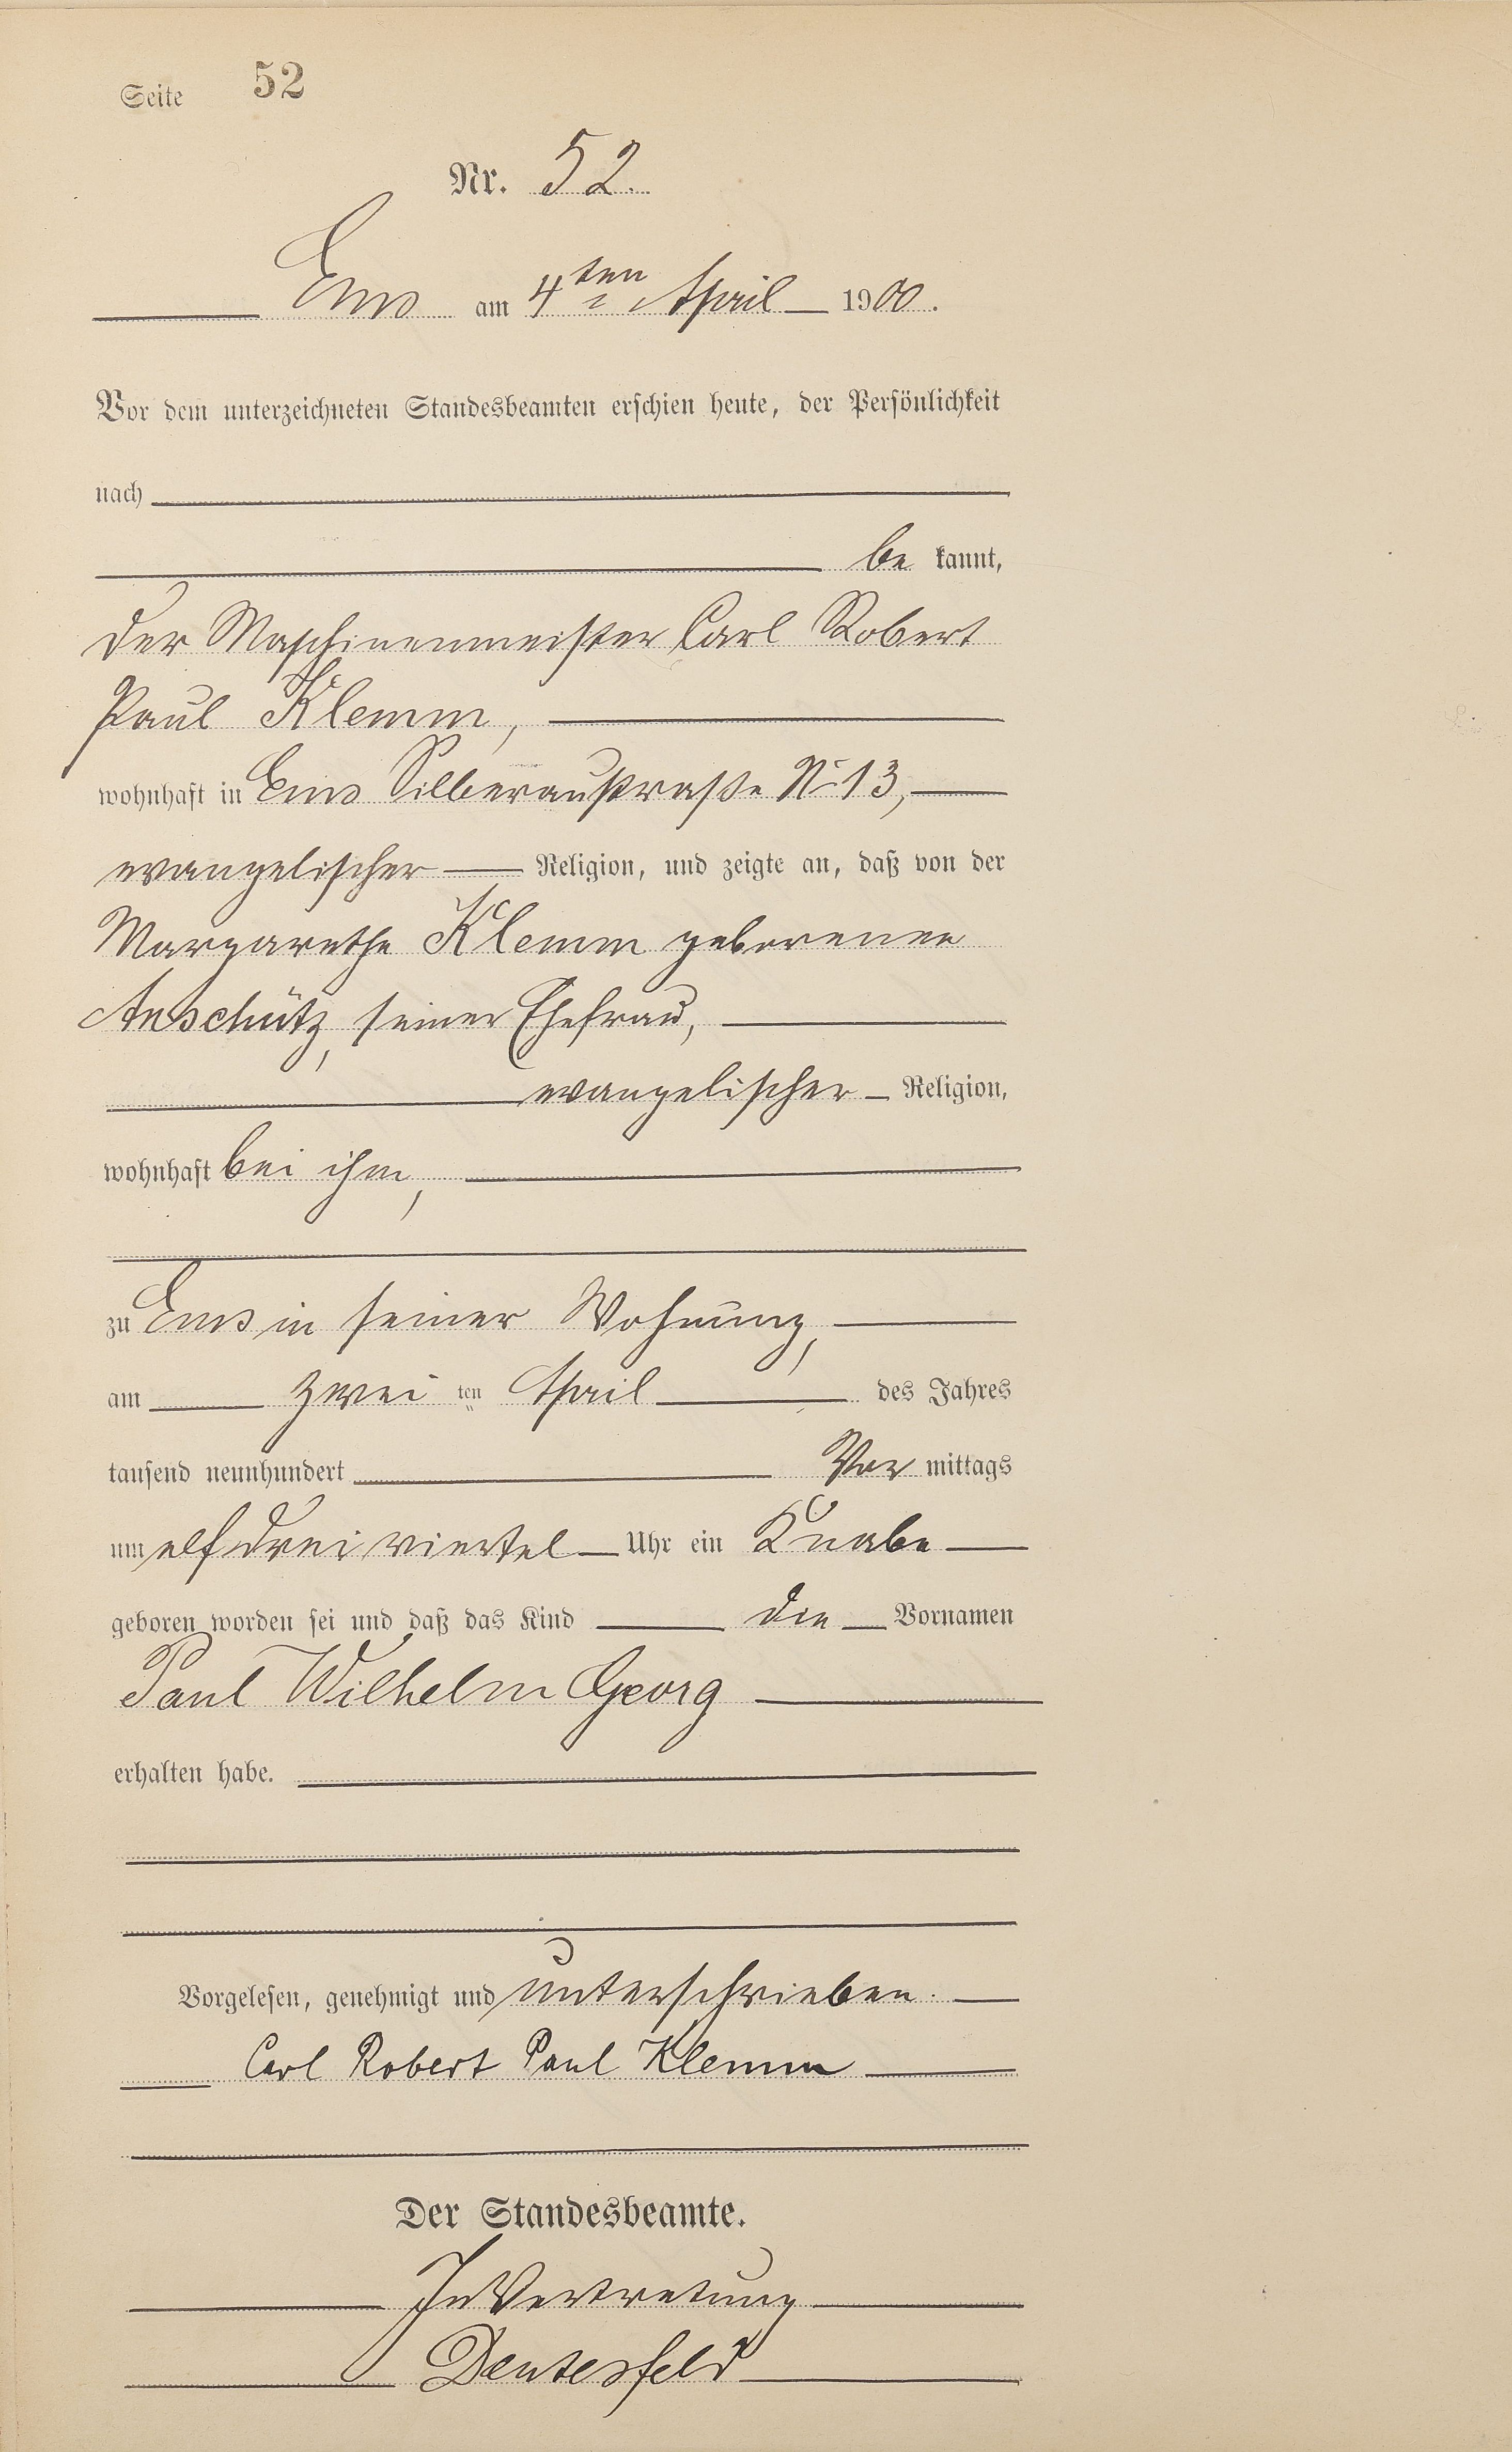 Seite 52
Nr. 52.
Ems am 4ten April 1900.
Vor dem unterzeichneten Standesbeamten erschien heute, der Persönlichkeit
nach
be kannt,
der Maschinenmeister Carl Robert
Paul Klemm,
wohnhaft in Ems Silberaustraße No 13,
evangelischer Religion, und zeigte an, daß von der
Margarethe Klemm geborenen
Anschütz, seiner Ehefrau,
evangelischer Religion,
wohnhaft bei ihm,
zu Ems in seiner Wohnung,
am zwei ten April des Jahres
tausend neunhundert Vor mittags
um elf drei viertel Uhr ein Knabe
geboren worden sei und daß das Kind die Vornamen
Paul Wilhelm Georg
erhalten habe.
Vorgelesen, genehmigt und unterschrieben.
Carl Robert Paul Klemm
Der Standesbeamte.
In Vertretung